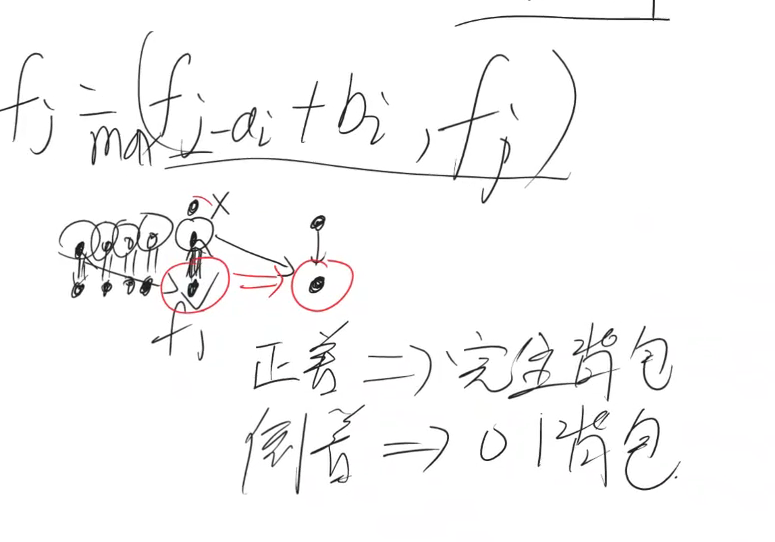 f_j = max(f_{j-a_i} + b_i, f_j)
x
f_j
正着 => 完全背包
倒着 => 01背包